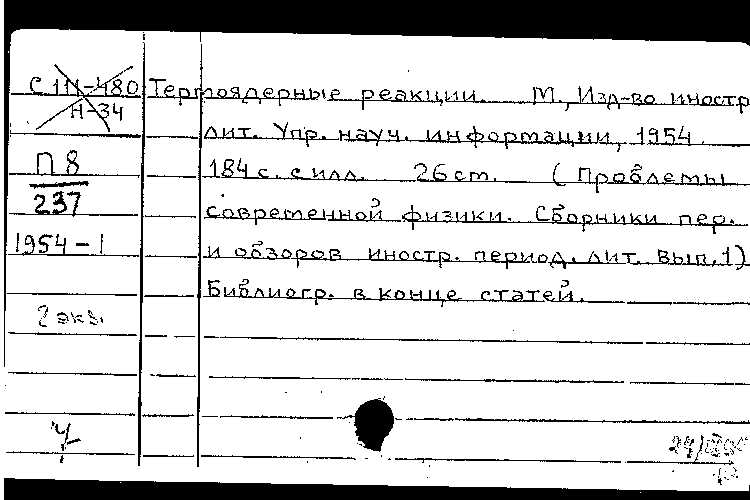 С III-480
Н-34
П 8
237
1954-1
2 экз.
Термоядерные реакции. М., Изд-во иностр
лит. Упр. науч. информации, 1954.
184 с. с илл. 26 cm. (Проблемы
современной физики. Сборники пер.
и обзоров иностр. период. лит. вып. 1)
Библиогр. в конце статей.